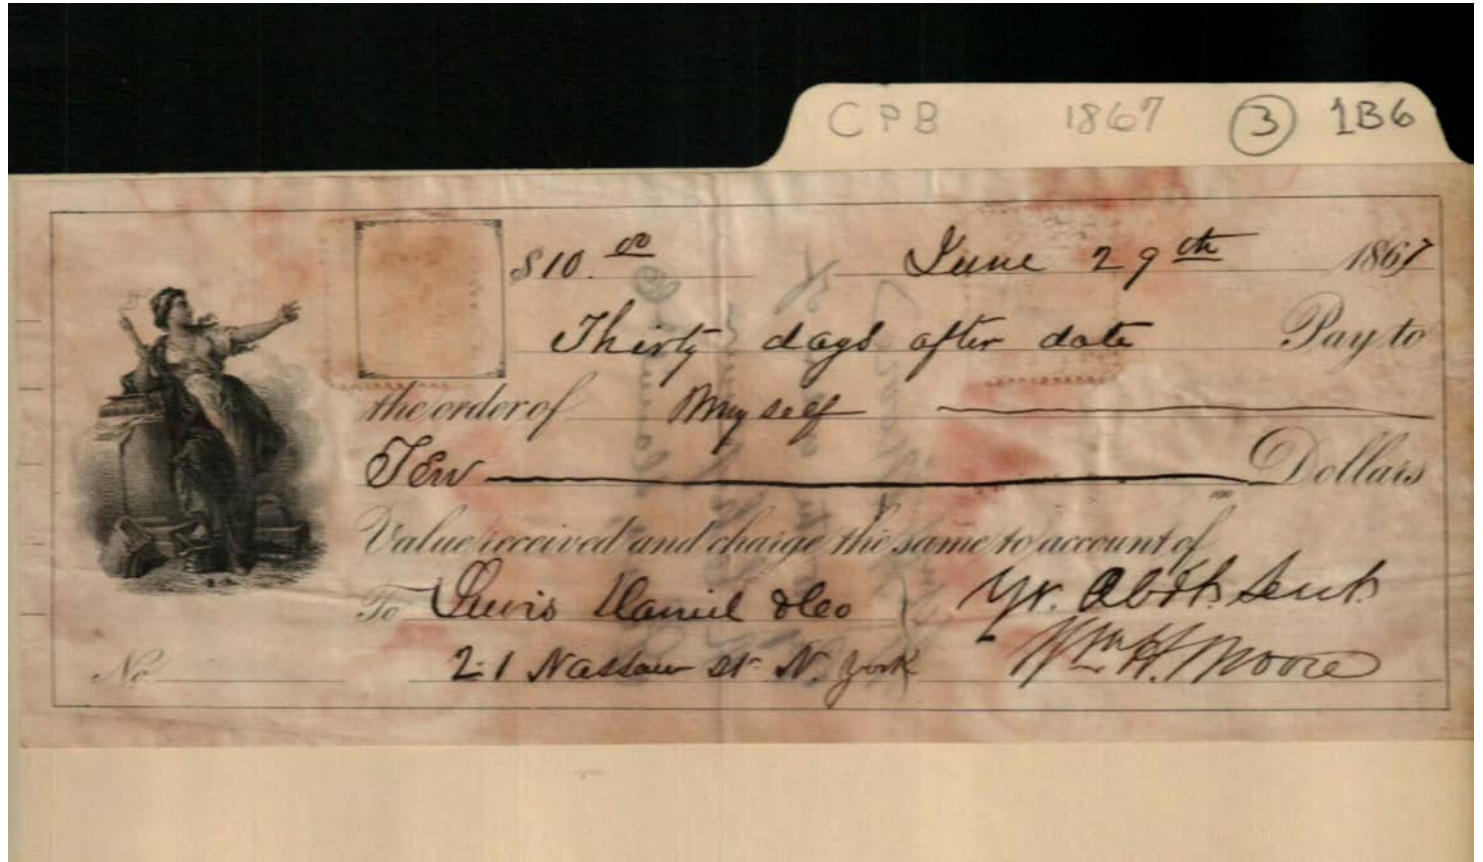 CPB 1867 3 1B6
$10.00 June 29th 1867
Thirty days after date Pay to
the order of Myself
Ten Dollars
100
Value received and charge the same to account of
To Lewis Daniel & Co Yr. Obt. Servt.
No. 21 Nassau St. N. York Wm H. Moore